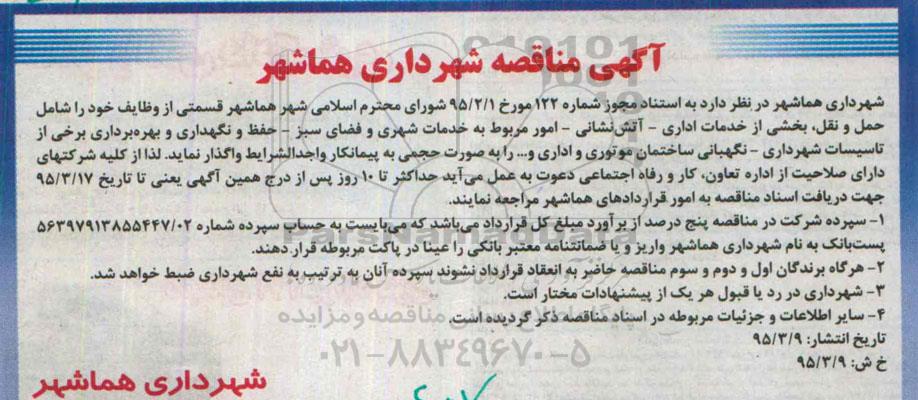 آگهی مناقصه شهرداری هماشهر
شهرداری هماشهر در نظر دارد به استناد مجوز شماره ۱۲۲ مورخ ۹۵/۲/۱ شورای محترم اسلامی شهر هماشهر قسمتی از وظایف خود را شامل
حمل و نقل، بخشی از خدمات اداری - آتش‌نشانی - امور مربوط به خدمات شهری و فضای سبز - حفظ و نگهداری و بهره‌برداری برخی از
تاسیسات شهرداری - نگهبانی ساختمان موتوری و اداری و... را به صورت حجمی به پیمانکار واجدالشرایط واگذار نماید. لذا از کلیه شرکتهای
دارای صلاحیت از اداره تعاون، کار و رفاه اجتماعی دعوت به عمل می‌آید حداکثر تا ۱۰ روز پس از درج همین آگهی یعنی تا تاریخ ۹۵/۳/۱۷
جهت دریافت اسناد مناقصه به امور قراردادهای هماشهر مراجعه نمایند.
۱- سپرده شرکت در مناقصه پنج درصد از برآورد مبلغ کل قرارداد می‌باشد که می‌بایست به حساب سپرده شماره ۵۶۳۹۷۹۱۳۸۵۵۴۴۷/۰۲
پست‌بانک به نام شهرداری هماشهر واریز و یا ضمانتنامه معتبر بانکی را عینا در پاکت مربوطه قرار دهند.
۲- هرگاه برندگان اول و دوم و سوم مناقصه حاضر به انعقاد قرارداد نشوند سپرده آنان به ترتیب به نفع شهرداری ضبط خواهد شد.
۳- شهرداری در رد یا قبول هر یک از پیشنهادات مختار است.
۴- سایر اطلاعات و جزئیات مربوطه در اسناد مناقصه ذکر گردیده است.
تاریخ انتشار: ۹۵/۳/۹
خ ش: ۹۵/۳/۹
شهرداری هماشهر
۰۲۱-۸۸۳۴۹۶۷۰-۵